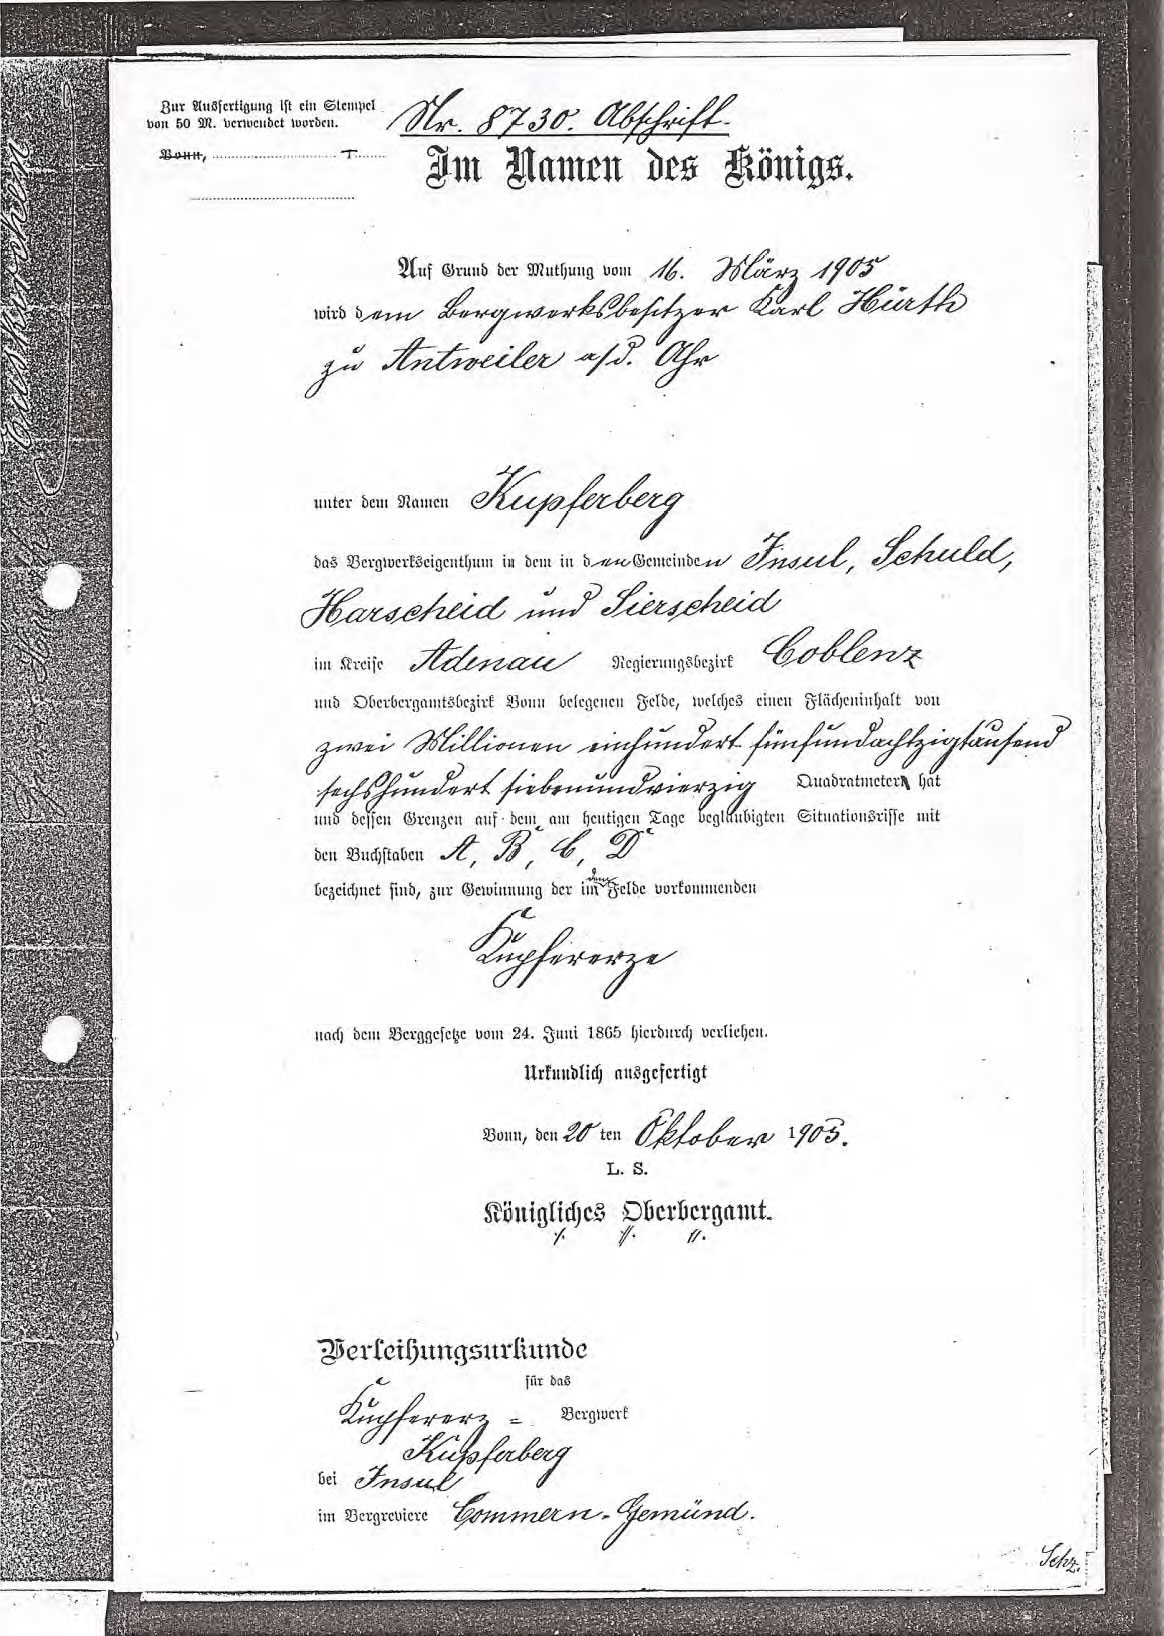 Zur Ausfertigung ist ein Stempel
von 50 M. verwendet worden.
Bonn,
Nr. 8730. Abschrift.
Im Namen des Königs.
Auf Grund der Muthung vom 16. März 1905
wird dem Bergwerksbesitzer Karl Hürth
zu Antweiler a/d. Ahr
unter dem Namen Kupferberg
das Bergwerkseigenthum in dem in den Gemeinden Insul, Schuld,
Harscheid und Sierscheid
im Kreise Adenau Regierungsbezirk Coblenz
und Oberbergamtsbezirk Bonn belegenen Felde, welches einen Flächeninhalt von
zwei Millionen einhundert fünfundachtzigtausend
sechshundert siebenundvierzig Quadratmeter hat
und dessen Grenzen auf dem am heutigen Tage beglaubigten Situationsrisse mit
den Buchstaben A, B, C, D
bezeichnet sind, zur Gewinnung der in dem Felde vorkommenden
Kupfererze
nach dem Berggesetze vom 24. Juni 1865 hierdurch verliehen.
Urkundlich ausgefertigt
Bonn, den 20ten Oktober 1905.
L. S.
Königliches Oberbergamt.
Verleihungsurkunde
für das
Kupfererz = Bergwerk
Kupferberg
bei Insul
im Bergreviere Commern-Gemünd.
Schz.